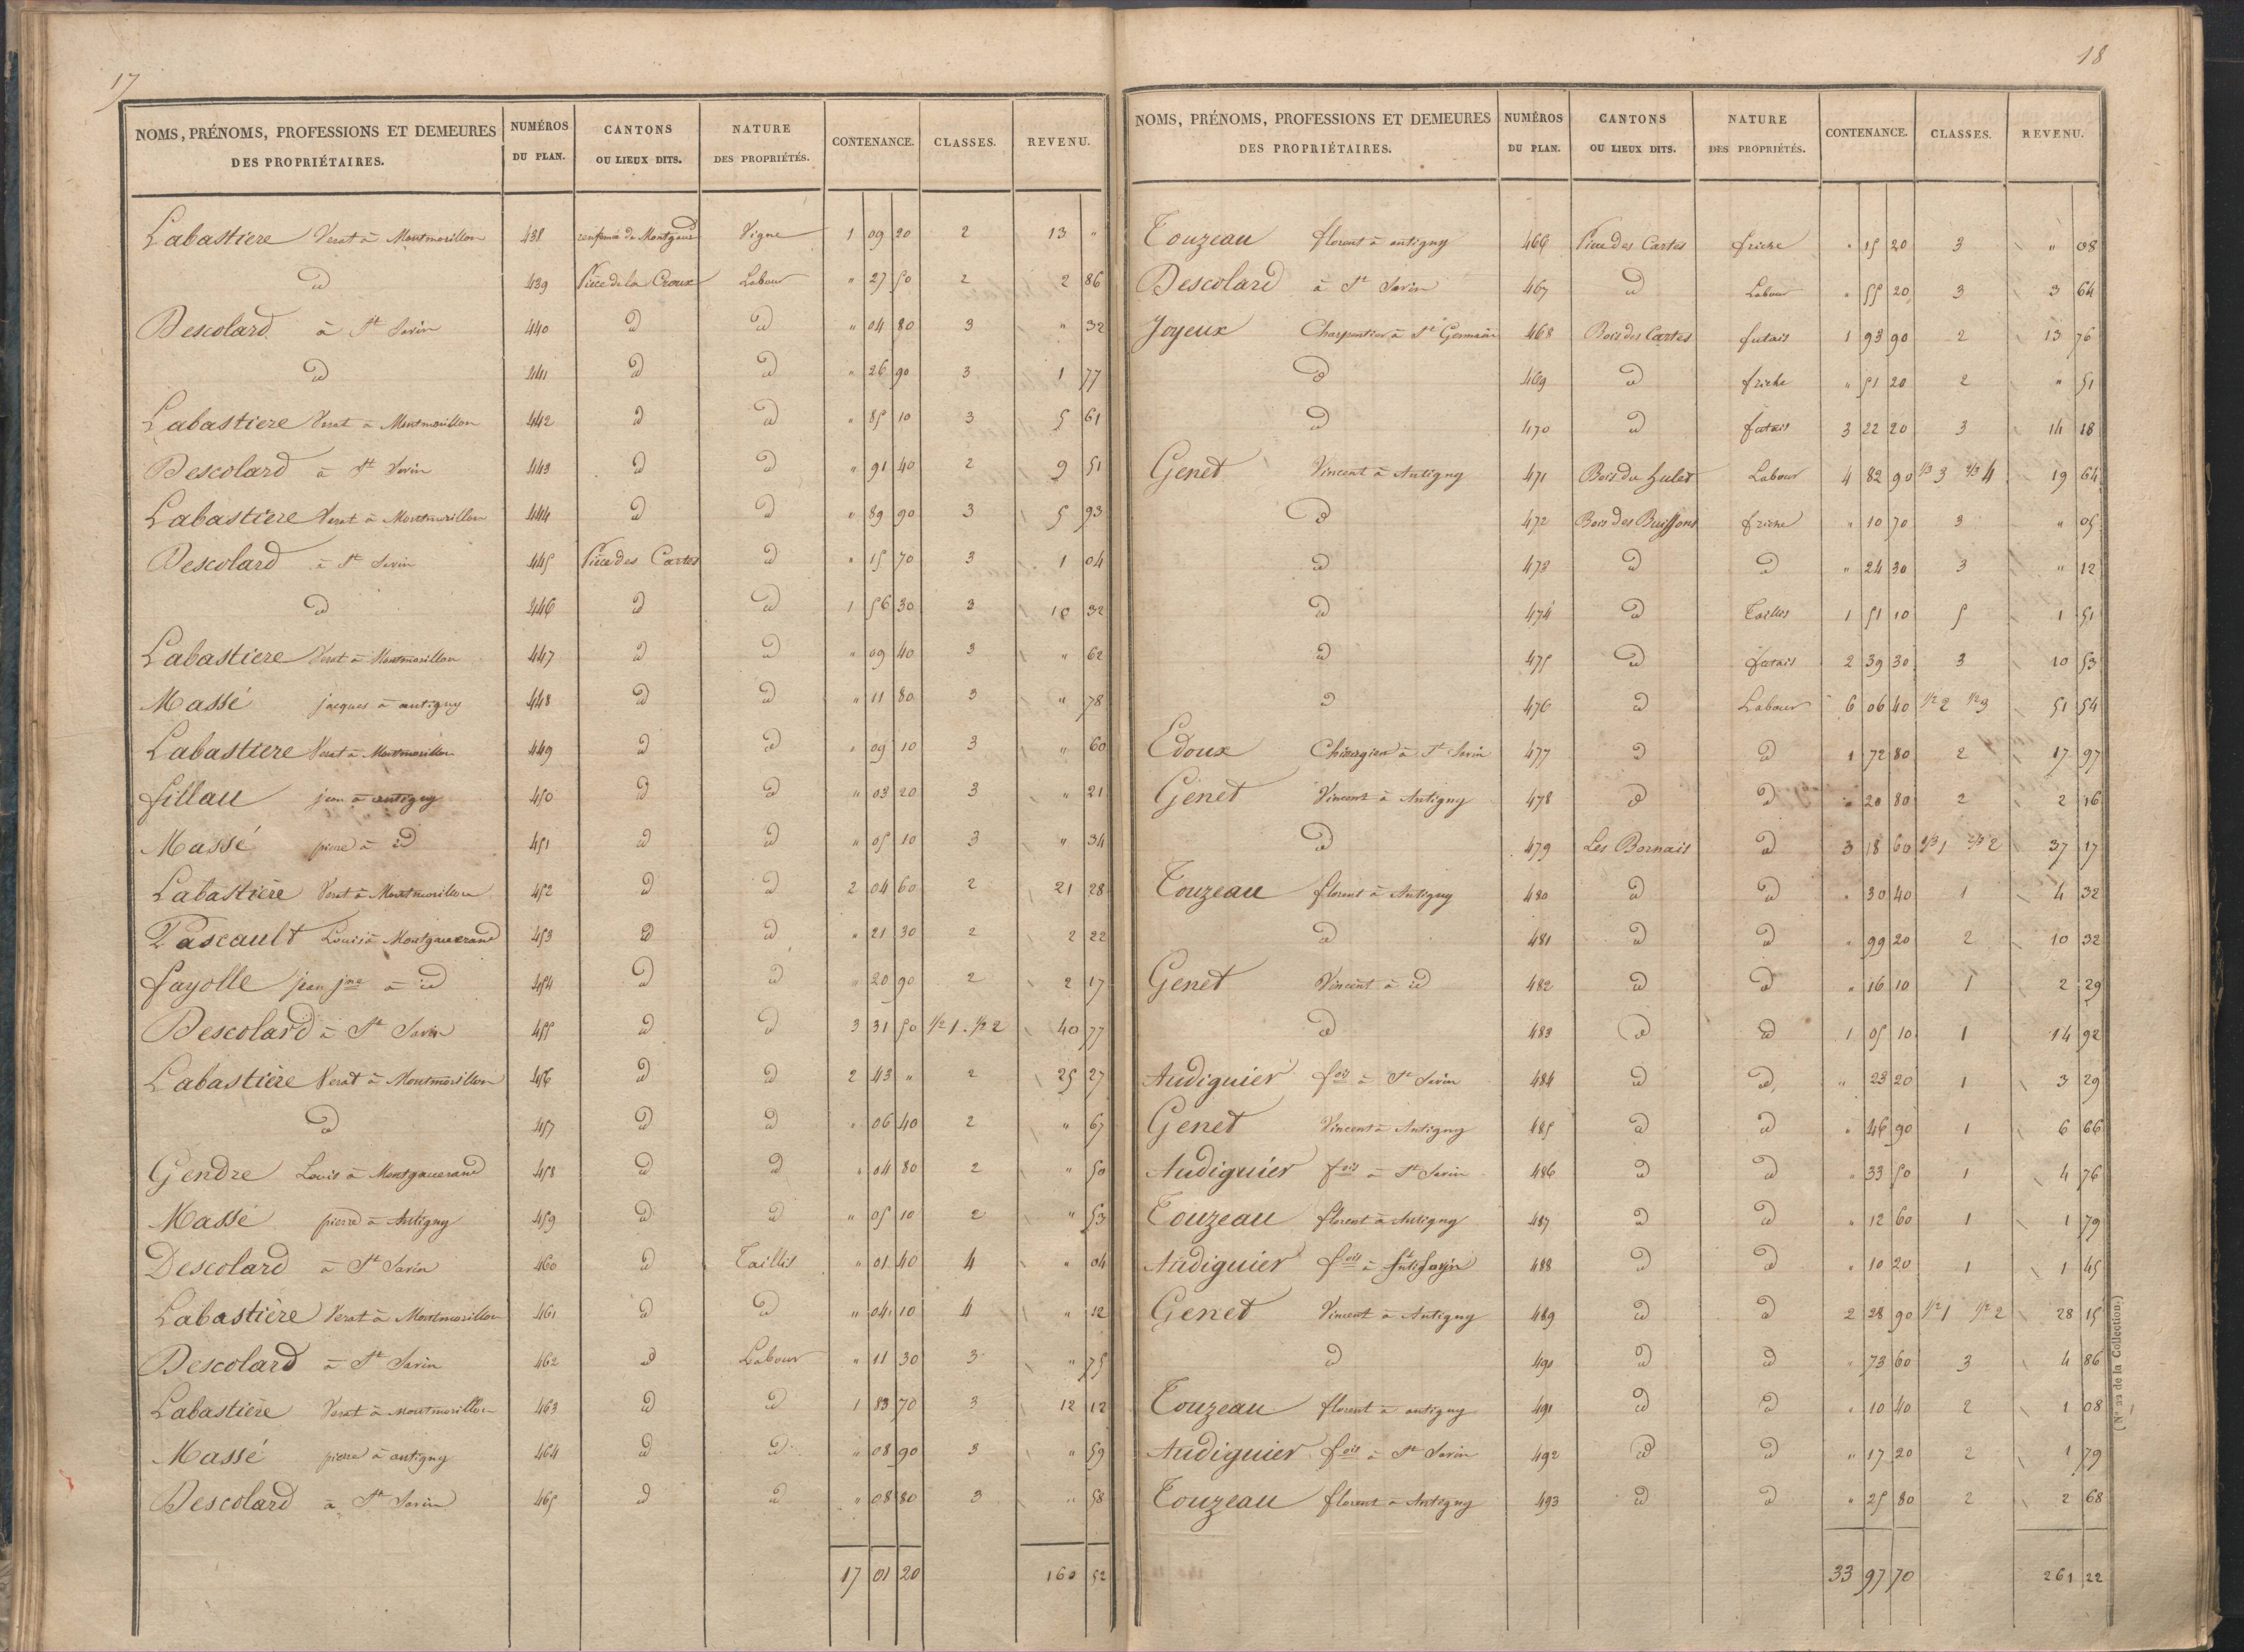 17
NOMS, PRÉNOMS, PROFESSIONS ET DEMEURES DES PROPRIÉTAIRES. NUMÉROS DU PLAN. CANTONS OU LIEUX DITS. NATURE DES PROPRIÉTÉS. CONTENANCE. CLASSES. REVENU.
Labastiere Verat à Montmorillon 438 renfermé de Montgaur Vigne 1 09 20 2 13 "
id 439 Piece de la Croux Labour " 27 50 2 2 86
Descolard à St Savin 440 id id " 04 80 3 " 32
id 441 id id " 26 90 3 1 77
Labastiere Verat à Montmorillon 442 id id " 85 10 3 5 61
Descolard à St Savin 443 id id " 91 40 2 9 51
Labastiere Verat à Montmorillon 444 id id " 89 90 3 5 93
Descolard à St Savin 445 Piece des Cartes id " 15 70 3 1 04
id 446 id id 1 56 30 3 10 32
Labastiere Verat à Montmorillon 447 id id " 09 40 3 " 62
Massé jacques à antigny 448 id id " 11 80 3 " 78
Labastiere Verat à Montmorillon 449 id id " 09 10 3 " 60
fillau jean à antigny 450 id id " 03 20 3 " 21
Massé pierre à id 451 id id " 05 10 3 " 34
Labastiere Verat à Montmorillon 452 id id 2 04 60 2 21 28
Pascault Louis à Montgauerand 453 id id " 21 30 2 2 22
fayolle jean jne à id 454 id id " 20 90 2 2 17
Descolard à St Savin 455 id id 3 31 50 1/2 1 . 1/2 2 40 77
Labastière Verat à Montmorillon 456 id id 2 43 " 2 25 27
id 457 id id " 06 40 2 " 67
Gendre Louis à Montgauerand 458 id id " 04 80 2 " 50
Massé pierre à Antigny 459 id id " 05 10 2 " 53
Descolard à St Savin 460 id Taillis " 01 40 4 " 04
Labastière Verat à Montmorillon 461 id id " 04 10 4 " 12
Descolard à St Savin 462 id Labour " 11 30 3 " 75
Labastière Verat à Montmorillon 463 id id 1 83 70 3 12 12
Massé pierre à antigny 464 id id " 08 90 3 " 59
Descolard à St Savin 465 id id " 08 80 3 " 58
17 01 20 160 52
18
NOMS, PRÉNOMS, PROFESSIONS ET DEMEURES DES PROPRIÉTAIRES. NUMÉROS DU PLAN. CANTONS OU LIEUX DITS. NATURE DES PROPRIÉTÉS. CONTENANCE. CLASSES. REVENU.
Touzeau florent à antigny 466 Piece des Cartes friche " 15 20 3 " 08
Descolard à St Savin 467 id Labour " 55 20 3 3 64
Joyeux Charpentier à St Germain 468 Bois des Cartes futais 1 93 90 2 13 76
id 469 id friche " 51 20 2 " 51
id 470 id futais 3 22 20 3 14 18
Genet Vincent à Antigny 471 Bois du hulet Labour 4 82 90 1/3 3 2/3 4 19 64
id 472 Bois des Buissons friche " 10 70 3 " 05
id 473 id id " 24 30 3 " 12
id 474 id Taillis 1 51 10 5 1 51
id 475 id futais 2 39 30 3 10 53
id 476 id Labour 6 06 40 1/2 2 1/2 3 51 54
Edoux Chirurgien à St Savin 477 id id 1 72 80 2 17 97
Genet Vincent à Antigny 478 id id " 20 80 2 2 16
id 479 Les Bornais id 3 18 60 1/3 1 2/3 2 37 17
Touzeau florent à Antigny 480 id id " 30 40 1 4 32
id 481 id id " 99 20 2 10 32
Genet Vincent à id 482 id id " 16 10 1 2 29
id 483 id id 1 05 10 1 14 92
Audiguier fois à St Savin 484 id id " 23 20 1 3 29
Genet Vincent à Antigny 485 id id " 46 90 1 6 66
Audiguier fois à St Savin 486 id id " 33 50 1 4 76
Touzeau florent à Antigny 487 id id " 12 60 1 1 79
Audiguier fois à St Savin 488 id id " 10 20 1 1 45
Genet Vincent à Antigny 489 id id 2 28 90 1/2 1 1/2 2 28 15
id 490 id id " 73 60 3 4 86
Touzeau florent à antigny 491 id id " 10 40 2 1 08
Audiguier fois à St Savin 492 id id " 17 20 2 1 79
Touzeau florent à Antigny 493 id id " 25 80 2 2 68
33 97 70 261 22